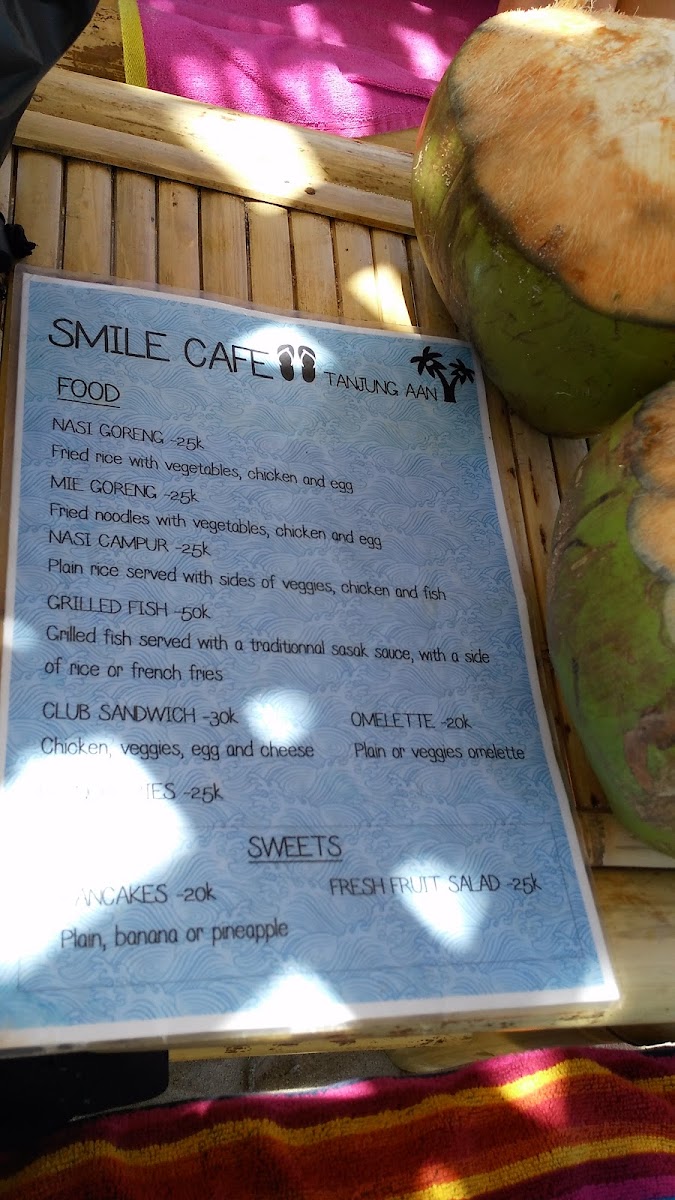 SMILE CAFE
TANJUNG AAN
FOOD
NASI GORENG -25k
Fried rice with vegetables, chicken and egg
MIE GORENG -25k
Fried noodles with vegetables, chicken and egg
NASI CAMPUR -25k
Plain rice served with sides of veggies, chicken and fish
GRILLED FISH -50k
Grilled fish served with a traditionnal sasak sauce, with a side
of rice or french fries
CLUB SANDWICH -30k
Chicken, veggies, egg and cheese
OMELETTE -20k
Plain or veggies omelette
-25k
SWEETS
ANCAKES -20k
Plain, banana or pineapple
FRESH FRUIT SALAD -25k